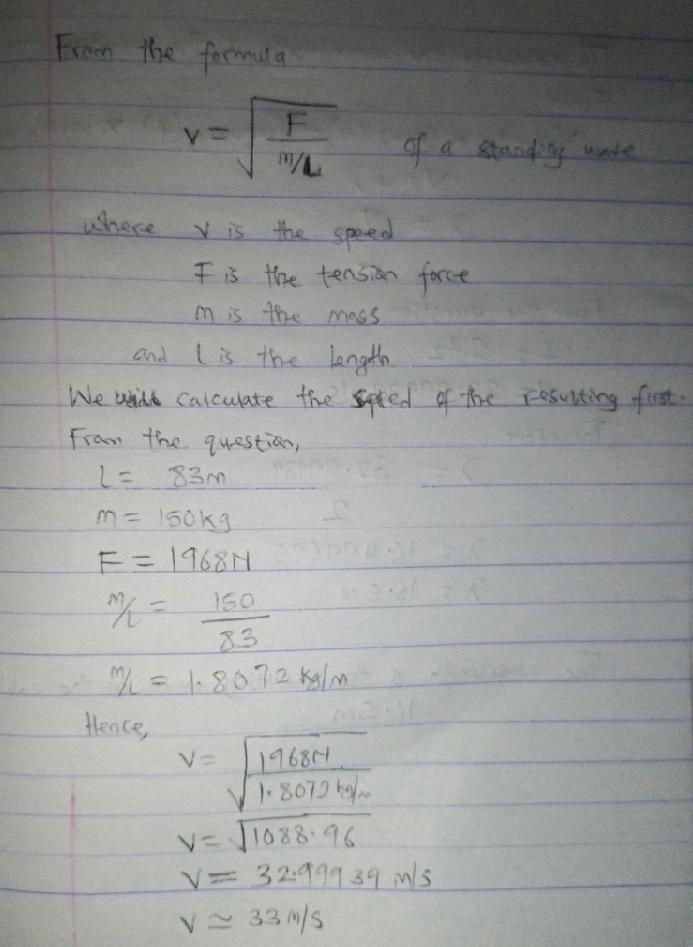 From the formula
v = √ F / m/L of a standing wave
where v is the speed
F is the tension force
m is the mass
and l is the length
We calculate the speed of the resulting first.
From the question,
L = 83m
m = 150kg
F = 1968N
m/L = 150 / 83
m/L = 1.8072 kg/m
Hence,
v = √ 1968N / 1.8072 kg/m
v = √1088.96
v = 32.99939 m/s
v ≃ 33 m/s